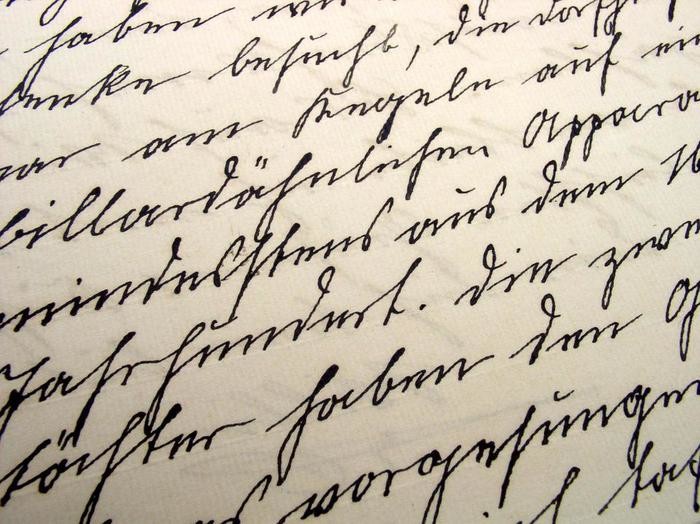 haben wir
schenke besucht, die dorfhi
war am Kegeln auf ein
billardähnlichen Appara
mindestens aus dem 16
Jahrhundert. Die zwe
töchter haben den G
vorgesungen